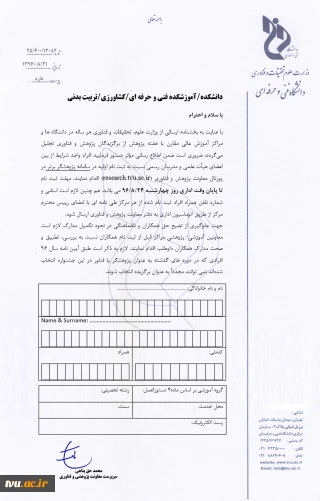 باسمه تعالی
۲۵/۴۰۰/۱۳۰۸۲
۱۳۹۶/۰۸/۲۱
وزارت علوم تحقیقات و فناوری
دانشگاه فنی و حرفه ای
دانشکده/ آموزشکده فنی و حرفه ای/کشاورزی/تربیت بدنی
با سلام و احترام
با عنایت به بخشنامه ارسالی از وزارت علوم، تحقیقات و فناوری هر ساله در دانشگاه ها و
مراکز آموزش عالی مقارن با هفته پژوهش از برگزیدگان پژوهش و فناوری تجلیل
می‌گردد، ضروری است ضمن اطلاع رسانی مؤثر دستور فرمایید افراد واجد شرایط از بین
اعضای هیأت علمی و مدرسان رسمی نسبت به ثبت نام اولیه در سامانه پژوهشگر برتر در
پورتال معاونت پژوهش و فناوری (research.tvu.ac.ir) اقدام نمایند. مهلت ثبت نام
تا پایان وقت اداری روز چهارشنبه ۹۶/۸/۲۴ می باشد. هم چنین لازم است اسامی و
شماره تلفن همراه افراد ثبت نام شده از هر مرکز طی نامه ای با امضای رییس محترم
مرکز از طریق اتوماسیون اداری به دفتر معاونت پژوهش و فناوری ارسال شود.
جهت جلوگیری از تضییع حق همکاران و ناهماهنگی در نحوه تکمیل مدارک لازم است
معاونین آموزشی/ پژوهشی مراکز قبل از ثبت نام همکاران نسبت به بررسی، تطبیق و
صحت مدارک همکاران داوطلب اقدام نمایند. لازم به ذکر است طبق آیین نامه سال ۹۶
افرادی که در دوره های گذشته به عنوان پژوهشگر یا فناور در این جشنواره انتخاب
شده‌اند نمی توانند مجدداً به عنوان برگزیده انتخاب شوند.
نام و نام خانوادگی:
Name & Surname:
کدملی:
همراه:
گروه آموزشی بر اساس ماده۳ دستورالعمل:
رشته تحصیلی:
محل خدمت:
سمت:
پست الکترونیک:
محمد حق پناهی
سرپرست معاونت پژوهشی و فناوری
نشانی:
website: www.tvu.ac.ir
Email: info@tvu.ac.ir
tvu.ac.ir